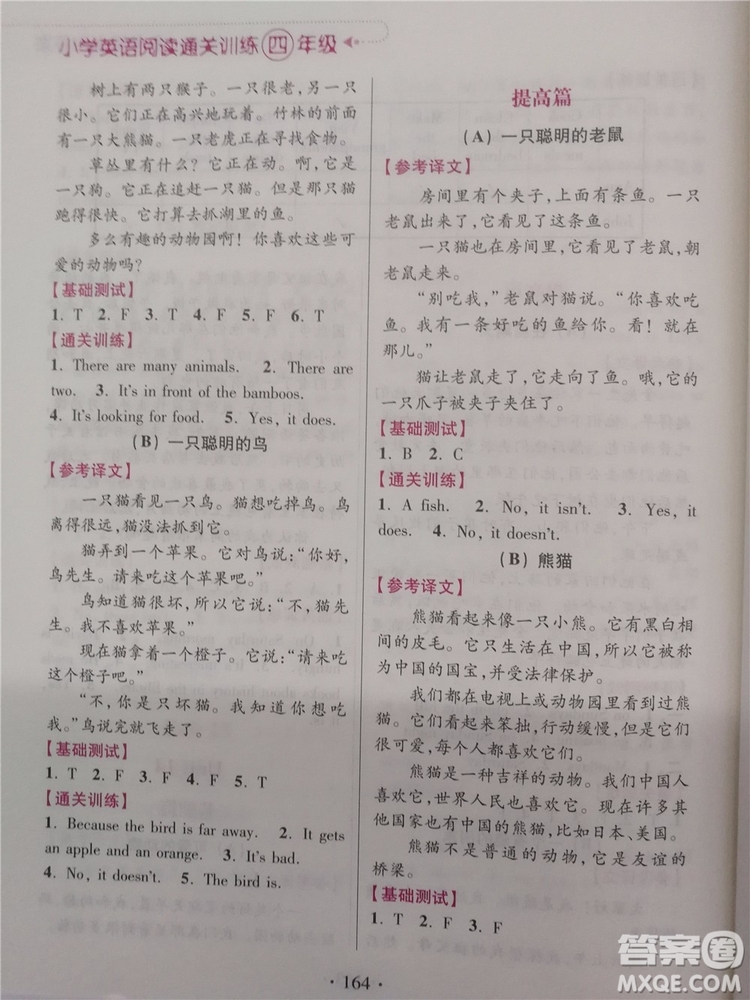 小学英语阅读通关训练 四 年级
树上有两只猴子。一只很老，另一只
很小。它们正在高兴地玩着。竹林的前面
有一只大熊猫。一只老虎正在寻找食物。
草丛里有什么在动。啊，它正在动，是
一只狗。它正在追赶一只猫。看！那只猫
跑得很快。它打算去抓湖里的鱼。
多么有趣的动物园啊！你喜欢这些可
爱的动物吗？
【基础测试】
1. T 2. F 3. T 4. F 5. F 6. T
【通关训练】
1. There are many animals. 2. There are
two. 3. It's in front of the bamboos.
4. It's looking for food. 5. Yes, it does.
(B) 一只聪明的鸟
【参考译文】
一只猫看见一只鸟。猫想吃掉鸟。鸟
离得很远，猫没法抓到它。
猫弄到一个苹果。它对鸟说：“你好，
鸟先生。请来吃这个苹果吧。”
鸟知道猫很坏，所以它说：“不，猫先
生。我不喜欢苹果。”
现在猫拿着一个橙子。它说：“请来吃
这个橙子吧。”
“不，你是只坏猫。我知道你想吃
我。”鸟说完就飞走了。
【基础测试】
1. T 2. F 3. F 4. F 5. T
【通关训练】
1. Because the bird is far away. 2. It gets
an apple and an orange. 3. It's bad.
4. No, it doesn't. 5. The bird is.
提高篇
(A) 一只聪明的老鼠
【参考译文】
房间里有个夹子，上面有条鱼。一只
老鼠出来了，它看见了这条鱼。
一只猫在房间里，它看见了老鼠，朝
老鼠走来。
“别吃我，”老鼠对猫说。“你喜欢吃
鱼。我有一条好吃的鱼给你。看！就在
那儿。”
猫让老鼠走了，它走向了鱼。哦，它的
一只爪子被夹子夹住了。
【基础测试】
1. B 2. C
【通关训练】
1. A fish. 2. No, it isn't. 3. Yes, it
does. 4. No, it doesn't.
(B) 熊猫
【参考译文】
熊猫看起来像一只小熊。它有黑白相
间的皮毛。它只生活在中国，所以被称为
中国的国宝，并受法律保护。
我们都在电视上或动物园里见过熊
猫。熊猫看起来笨拙，行动缓慢，但它们
很可爱，每个人都喜欢它们。
熊猫是一种吉祥的动物。中国人民喜
欢它，世界人民也喜欢它。许多其他的国
家都有来自中国的熊猫，比如日本、美国。
熊猫不是普通的动物，它是友谊的
桥梁。
【基础测试】
1. T 2. F 3. F
· 164 ·
答案圈
MXQE.COM